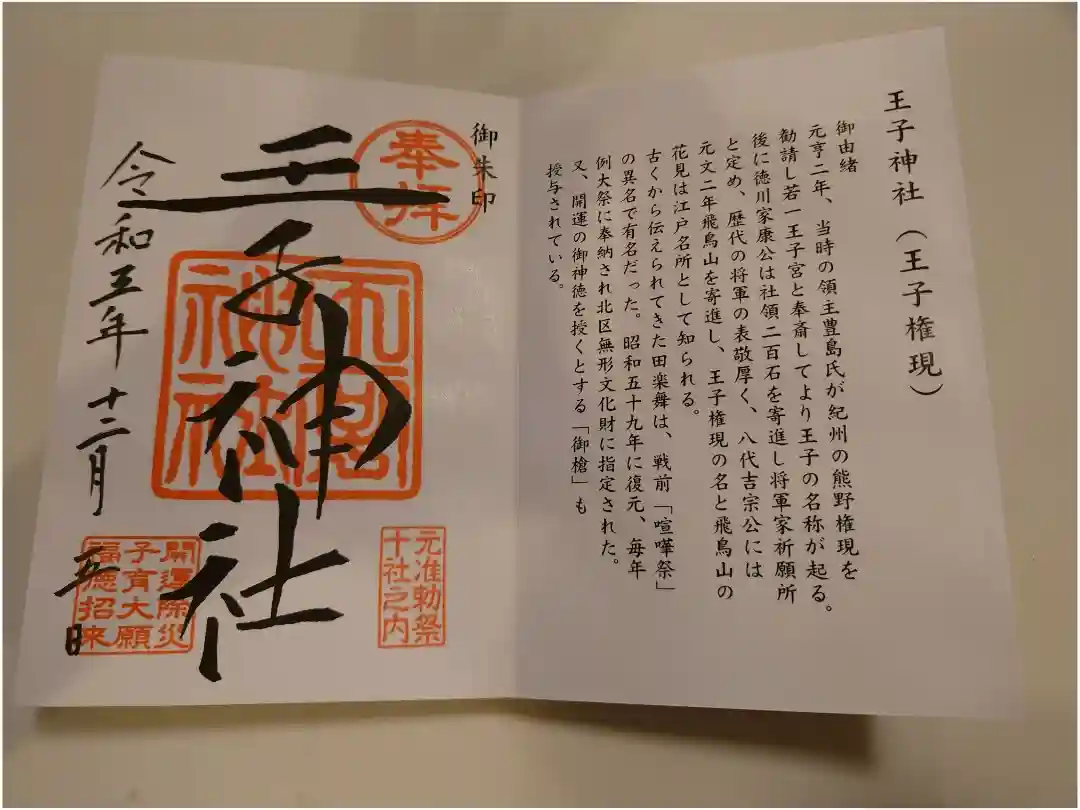 王子神社（王子権現）
御由緒
元亨二年、当時の領主豊島氏が紀州の熊野権現を
勧請し若一王子宮と奉斎してより王子の名称が起る。
後に徳川家康公は社領二百石を寄進し将軍家祈願所
と定め、歴代の将軍の表敬厚く、八代吉宗公には
元文二年飛鳥山を寄進し、王子権現の名と飛鳥山の
花見は江戸名所として知られる。
古くから伝えられてきた田楽舞は、戦前「喧嘩祭」
の異名で有名だった。昭和五十九年に復元、毎年
例大祭に奉納され北区無形文化財に指定された。
又、開運の御神徳を授くとする「御槍」も
授与されている。
御朱印
奉拝
王子神社
元准勅祭
十社之内
令和三年十二月五日
開運除災
子育大願
福徳招来